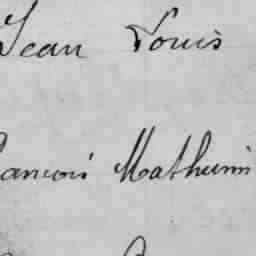 Jean Louis
ancois Mathurin